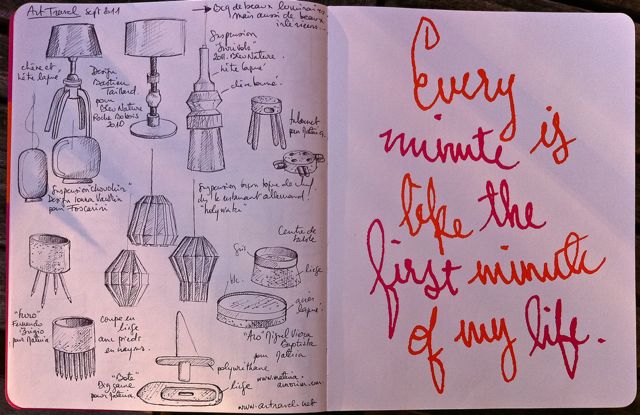 Art Travel Sept 2011
→ Bcq de beaux luminaires
mais aussi de beaux
intérieurs...
Suspension
2011. Bleu Nature.
hêtre laqué
chêne et
hêtre laqué
Design
Bastien
Taillard
pour
Bleu Nature
Roche Bobois
2010
chêne tourné
tabouret
pour Materia
Suspension "chouchin"
Design Ionna Vautrin
pour Foscarini
du restaurant allemand!
"holywater"
Centre de
table
liège
gris
blc
acier
laqué
"Furo"
Fernando
Brizio
pour Materia
Coupe en
liège
aux pieds
en crayons.
"Aro" Miguel Vieira
Baptista
pour Materia
polyuréthane
www.materia.
amorim.com
liège
"Bote"
Big game
pour Materia.
www.artravel.net
Every
minute is
like the
first minute
of my life.